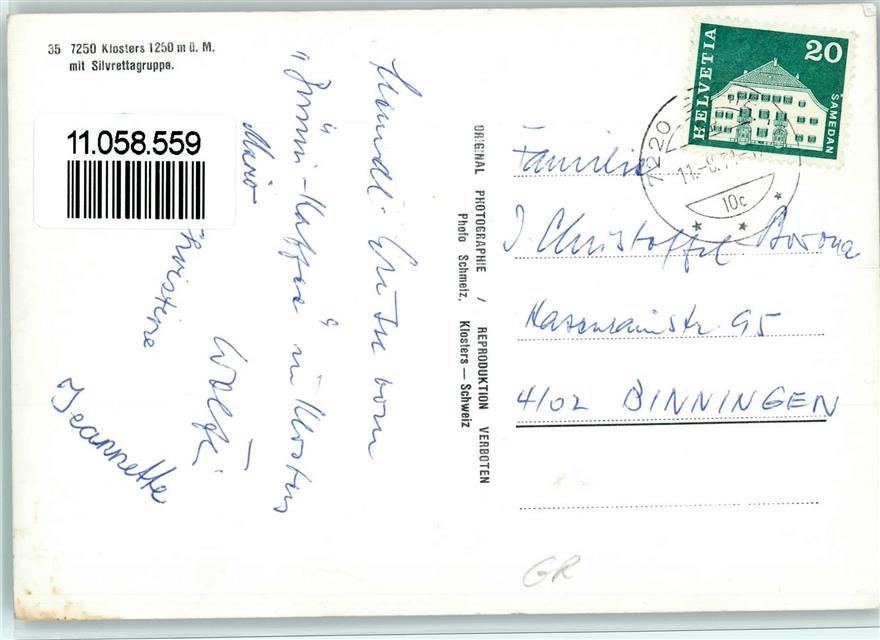 35 7250 Klosters 1250 m ü. M.
mit Silvrettagruppe.
11.058.559
Grüsse vom
"-Kaffee" in Klosters
Mario
Jeannette
ORIGINAL PHOTOGRAPHIE / REPRODUKTION VERBOTEN
Photo Schmelz, Klosters – Schweiz
HELVETIA
20
SAMEDAN
7220
10c
Familie
J. Christoffel-Bosona
Hasenrainstr. 95
4102 BINNINGEN
GR